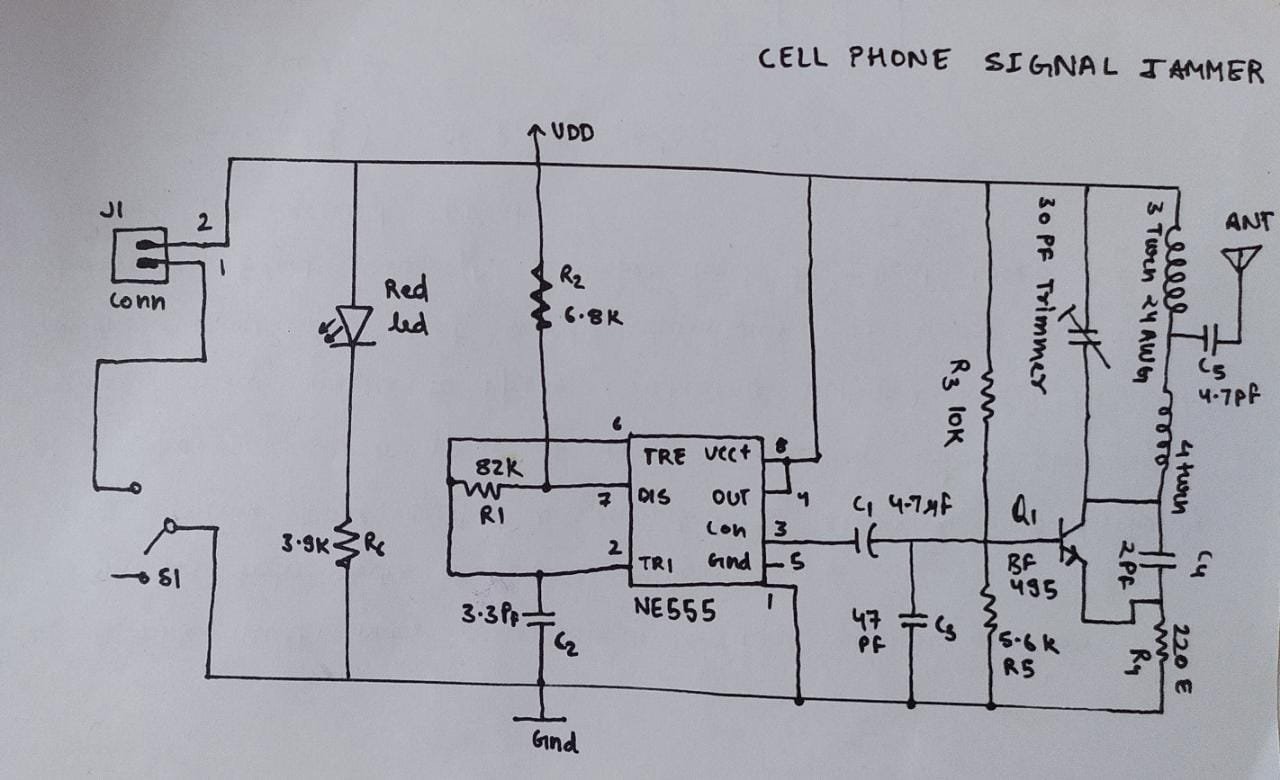 CELL PHONE SIGNAL JAMMER
VDD
J1
2
1
Conn
Red
led
R2
6.8K
30 PF Trimmer
3 Turn 24 AWG
ANT
C5
4.7PF
R3 10K
4 turn
6
TRE
VCC+
8
82K
R1
7
DIS
OUT
4
C1 4.7µF
Q1
Con
3
3.9K
R6
2
TRI
Gnd
5
BF
495
2PF
C4
S1
NE555
1
3.3PF
C2
47
PF
C3
5.6K
R5
220 E
R4
Gnd